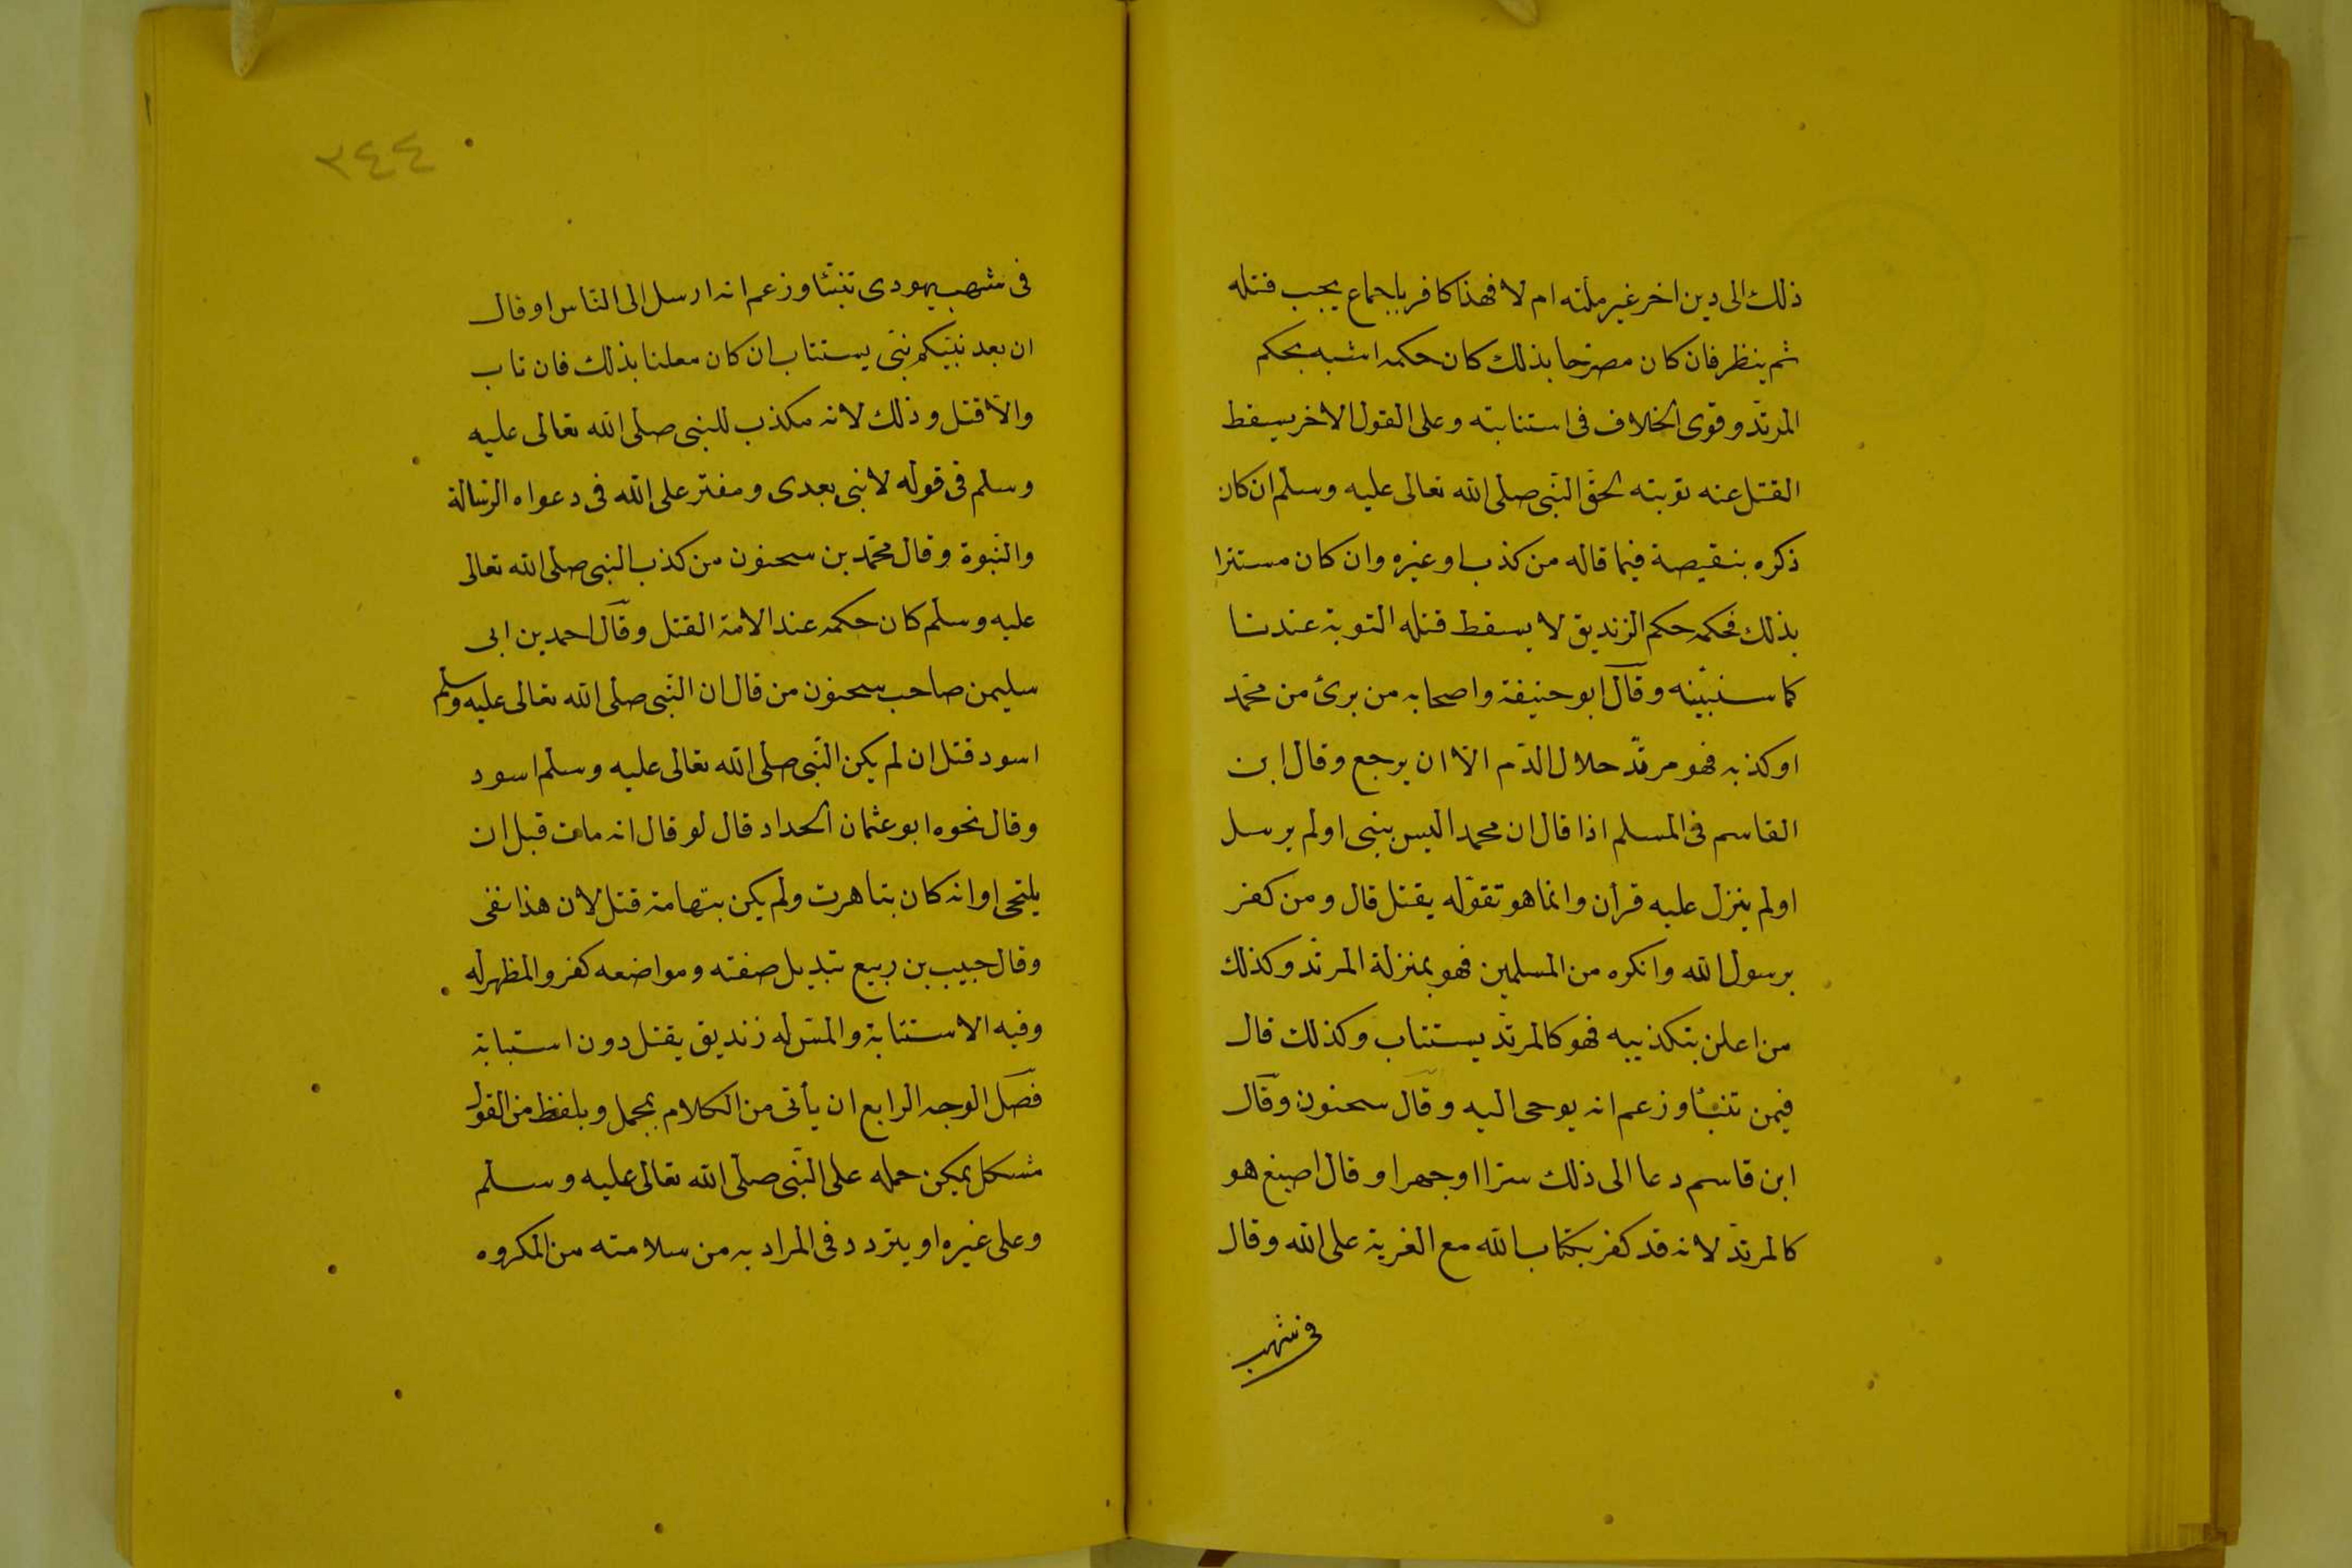 ذلك الى دين اخر غير ملته ام لا فهذا كافر باجماع يجب قتله
ثم ينظر فان كان مصرحا بذلك كان حكمه اشبه بحكم
المرتد وقوى الخلاف فى استتابته وعلى القول الاخر يسقط
القتل عنه توبته لحق النبى صلى الله تعالى عليه وسلم ان كان
ذكره بنقيصة فيما قاله من كذب او غيره وان كان مستترا
بذلك فحكمه حكم الزنديق لا يسقط قتله التوبة عندنا
كما سنبينه وقال ابو حنيفة واصحابه من برئ من محمد
او كذبه فهو مرتد حلال الدم الا ان يرجع وقال ابن
القاسم فى المسلم اذا قال ان محمدا ليس بنبى او لم يرسل
او لم ينزل عليه قرأن وانما هو تقوله يقتل قال ومن كفر
برسول الله وانكره من المسلمين فهو بمنزلة المرتد وكذلك
من اعلن بتكذيبه فهو كالمرتد يستتاب وكذلك قال
فيمن تنبأ وزعم انه يوحى اليه وقال سحنون وقال
ابن قاسم دعا الى ذلك سرا اوجهرا وقال اصبغ هو
كالمرتد لانه قد كفر بكتاب الله مع الفرية على الله وقال
فى شهب
٣٤٤
فى شهب يهودى تنبئا وزعم انه ارسل الى الناس او قال
ان بعد نبيكم نبى يستتاب ان كان معلنا بذلك فان تاب
والا قتل وذلك لانه مكذب للنبى صلى الله تعالى عليه
وسلم فى قوله لا نبى بعدى ومفتر على الله فى دعواه الرسالة
والنبوة وقال محمد بن سحنون من كذب النبى صلى الله تعالى
عليه وسلم كان حكمه عند الامة القتل وقال احمد بن ابى
سليمن صاحب سحنون من قال ان النبى صلى الله تعالى عليه وسلم
اسود قتل ان لم يكن النبى صلى الله تعالى عليه وسلم اسود
وقال نحوه ابو عثمان الحداد قال لو قال انه مات قبل ان
يلتحى او انه كان بتاهرت ولم يكن بتهامة قتل لان هذا نفى
وقال حبيب بن ربيع تبديل صفته ومواضعه كفر والمظهر له
وفيه الاستتابة والمسر له زنديق يقتل دون استبابة
فصل الوجه الرابع ان يأتى من الكلام بمجمل وبلفظ من القول
مشكل يمكن حمله على النبى صلى الله تعالى عليه وسلم
وعلى غيره او يتردد فى المراد به من سلامته من المكروه